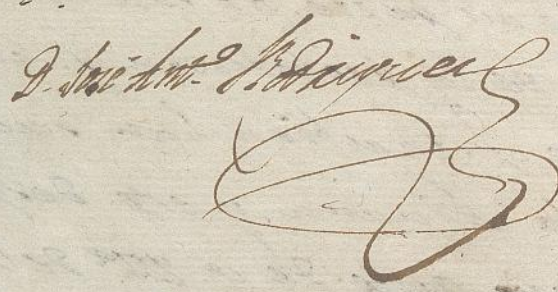 D. José Antº Rodriguez